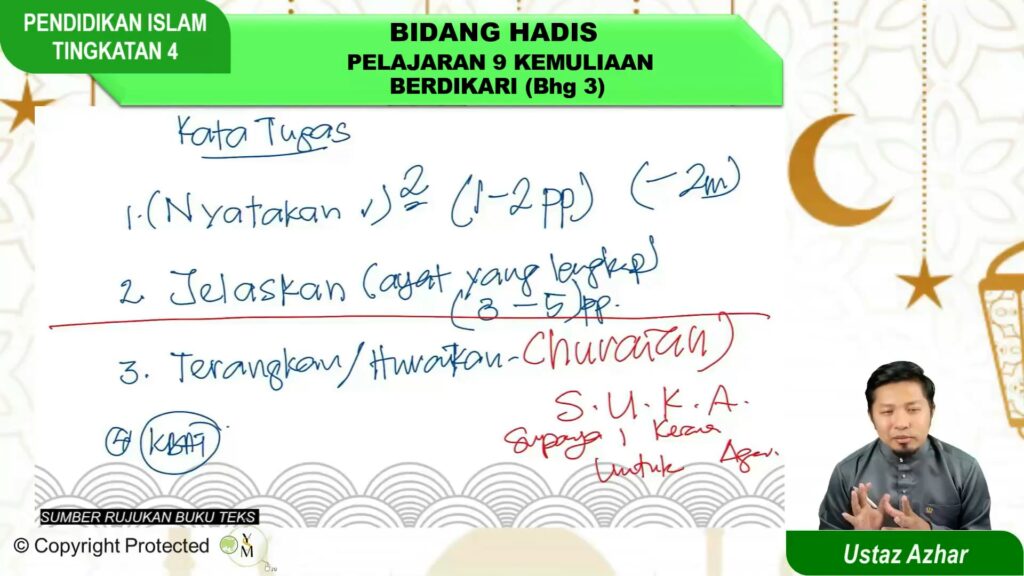 PENDIDIKAN ISLAM
TINGKATAN 4
BIDANG HADIS
PELAJARAN 9 KEMULIAAN
BERDIKARI (Bhg 3)
Kata Tugas
1. (Nyatakan √)² (1-2 pp) (-2m)
2. Jelaskan (ayat yang lengkap)
(3 - 5) pp.
3. Terangkan/Huraikan - (huraian)
S.U.K.A.
Supaya, Kerana
Untuk Agar.
KBAT
SUMBER RUJUKAN BUKU TEKS
© Copyright Protected YM
Ustaz Azhar